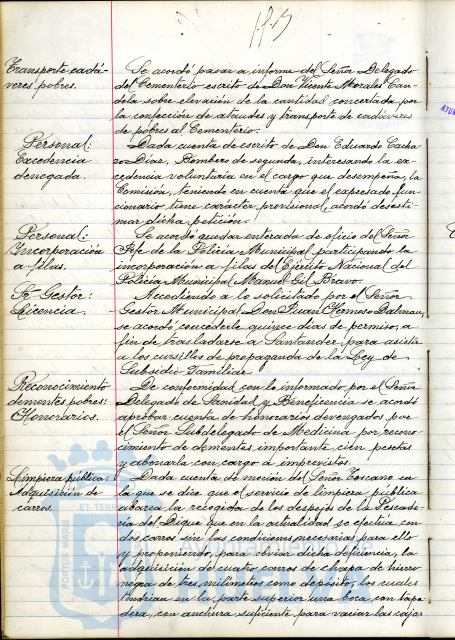 Transporte cadá-
veres pobres.
Se acordó pasar a informe del Señor Delegado
del Cementerio escrito de Don Vicente Morales Can-
dela sobre elevación de la cantidad concertada por
la confección de ataudes y transporte de cadáveres
de pobres al Cementerio.
Personal:
Excedencia
denegada.
Dada cuenta de escrito de Don Eduardo
Díaz, Bombero de segunda, interesando la ex-
cedencia voluntaria en el cargo que desempeña, la
Comisión, teniendo en cuenta que el expresado fun-
cionario tiene carácter provisional, acordó desesti-
mar dicha petición.
Personal:
Incorporación
a filas.
Se acordó quedar enterada de oficio del Señor
Jefe de la Policía Municipal participando la
incorporación a filas del Ejército Nacional del
Policía Municipal Manuel Gil Bravo.
Sr. Gestor:
Licencia.
Accediendo a lo solicitado por el Señor
Gestor Municipal Don Juan Hermoso Dalmau,
se acordó concederle quince dias de permiso, a
fin de trasladarse a Santander para asistir
a los cursillos de propaganda de la Ley de
Subsidio Familiar
Reconocimiento
dementes pobres:
Honorarios.
De conformidad con lo informado por el Señor
Delegado de Sanidad y Beneficencia se acordó
aprobar cuenta de honorarios devengados por
el Señor Subdelegado de Medicina por recono-
cimiento de dementes, importante cien pesetas
y abonarla con cargo a imprevistos.
Limpieza pública:
Adquisición de
carros.
Dada cuenta de moción del Señor Toscano en
la que se dice que el servicio de limpieza pública
abarca la recogida de los despojos de la Pescade-
ría del Dique que en la actualidad se efectúa con
dos carros sin las condiciones necesarias para ello
y proponiendo, para obviar dicha deficiencia, la
adquisición de cuatro carros de chapa de hierro
negra de tres milímetros como depósito, los cuales
tendrían en la parte superior una boca con tapa-
dera, con anchura suficiente para vaciar las cajas
PORTUS MARIS
ET TERRAE